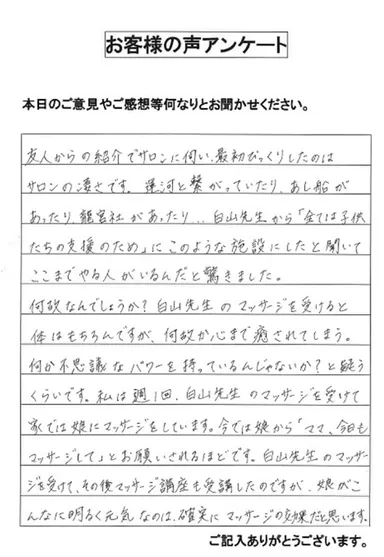 お客様の声アンケート
本日のご意見やご感想等何なりとお聞かせください。
友人からの紹介でサロンに伺い、最初びっくりしたのは
サロンの凄さです。運河と繋がっていたり、あし船が
あったり、龍宮社があったり... 白山先生から「全ては子供
たちの支援のため」にこのような施設にしたと聞いて
ここまでやる人がいるんだと驚きました。
何故なんでしょうか?白山先生のマッサージを受けると
体はもちろんですが、何故か心まで癒されてしまう。
何か不思議なパワーを持っているんじゃないか?と疑う
くらいです。私は週1回、白山先生のマッサージを受けて
家では娘にマッサージをしています。今では娘から「ママ、今日も
マッサージして」とお願いされるほどです。白山先生のマッサー
ジを受けて、その後マッサージ講座も受講したのですが、娘がこ
んなに明るく元気なのは、確実にマッサージの効果だと思います。
ご記入ありがとうございます。